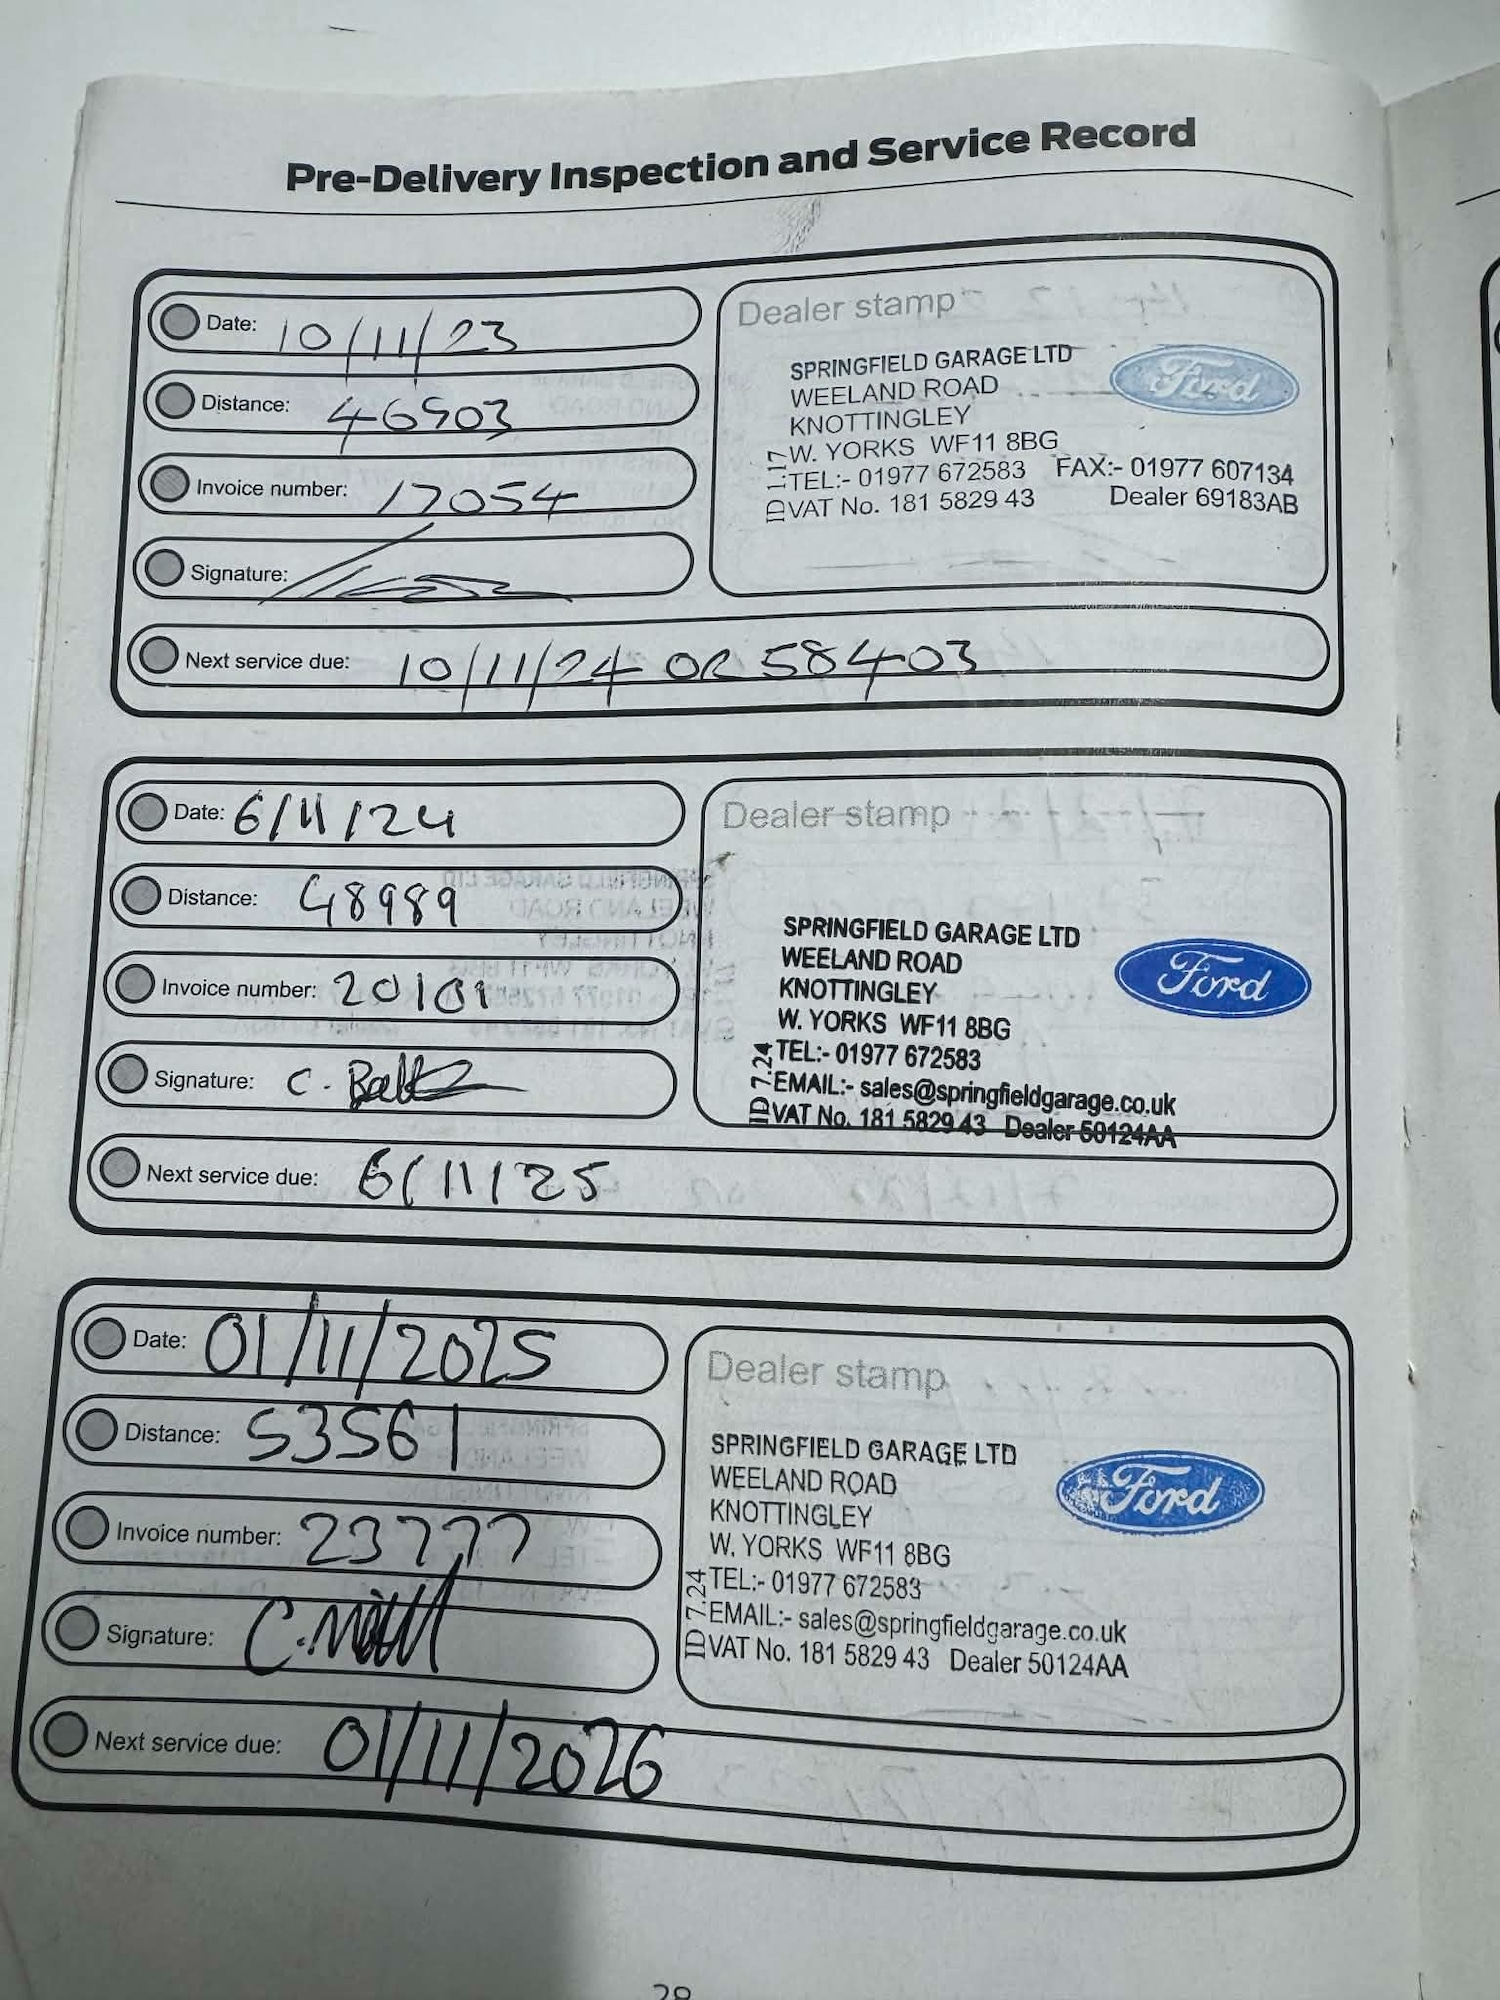 Pre-Delivery Inspection and Service Record
Date: 10/11/23
Distance: 46903
Invoice number: 17054
Signature:
Next service due: 10/11/24 OR 58403
Dealer stamp
SPRINGFIELD GARAGE LTD
WEELAND ROAD
KNOTTINGLEY
W. YORKS WF11 8BG
TEL:- 01977 672583 FAX:- 01977 607134
VAT No. 181 5829 43 Dealer 69183AB
ID 1.17
Ford
Date: 6/11/24
Distance: 48989
Invoice number: 20101
Signature: C.
Next service due: 6/11/25
Dealer stamp
SPRINGFIELD GARAGE LTD
WEELAND ROAD
KNOTTINGLEY
W. YORKS WF11 8BG
TEL:- 01977 672583
EMAIL:- sales@springfieldgarage.co.uk
VAT No. 181 5829 43 Dealer 50124AA
ID 7.24
Ford
Date: 01/11/2025
Distance: 53561
Invoice number: 23777
Signature: C.
Next service due: 01/11/2026
Dealer stamp
SPRINGFIELD GARAGE LTD
WEELAND ROAD
KNOTTINGLEY
W. YORKS WF11 8BG
TEL:- 01977 672583
EMAIL:- sales@springfieldgarage.co.uk
VAT No. 181 5829 43 Dealer 50124AA
ID 7.24
Ford